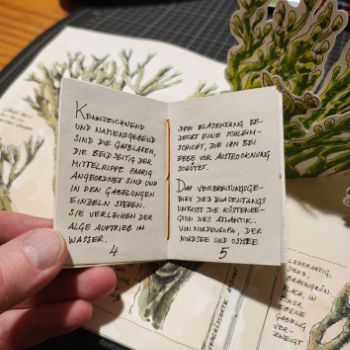 Kennzeichnend
und namensgebend
sind die Gasblasen,
die beidseitig der
Mittelrippe paarig
angeordnet sind und
in den Gabelungen
einzeln stehen.
Sie verleihen der
Alge Auftrieb im
Wasser.
4
den Blasentang be-
deckt eine Schleim-
schicht, die ihn bei
Ebbe vor Austrocknung
schützt.
Das Verbreitungsge-
biet des Blasentangs
umfasst die Küstenre-
gion des Atlantik.
von Nordeuropa, der
Nordsee und Ostsee
5
lederartig,
derb,
braungrün,
flach, in
einer
Ebene
gabelig
ver-
zweigt